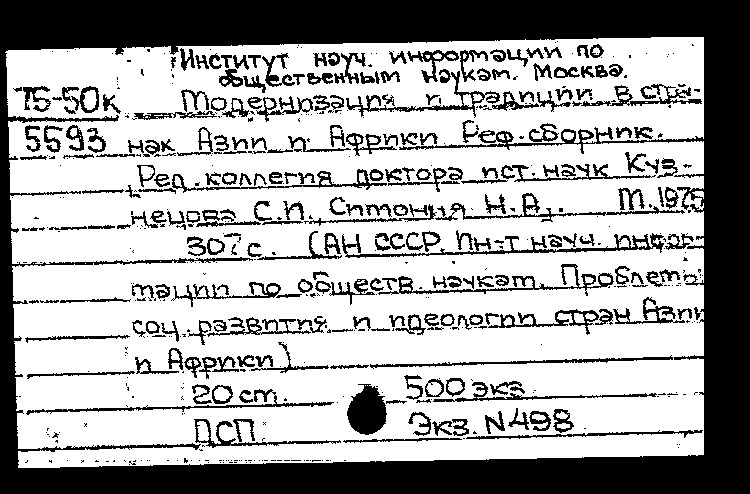 Институт науч. информации по
общественным наукам. Москва.
75-50к Модернизация и традиции в стра-
5593 нах Азии и Африки Реф. сборник.
Ред. коллегия доктора ист. наук Куз-
нецова С.И., Симония Н.А. М., 1975
307 с. (АН СССР. Ин-т науч. инфор-
мации по обществ. наукам. Проблемы
соц. развития и идеологии стран Азии
и Африки)
20 см. 500 экз
ДСП Экз. N 498